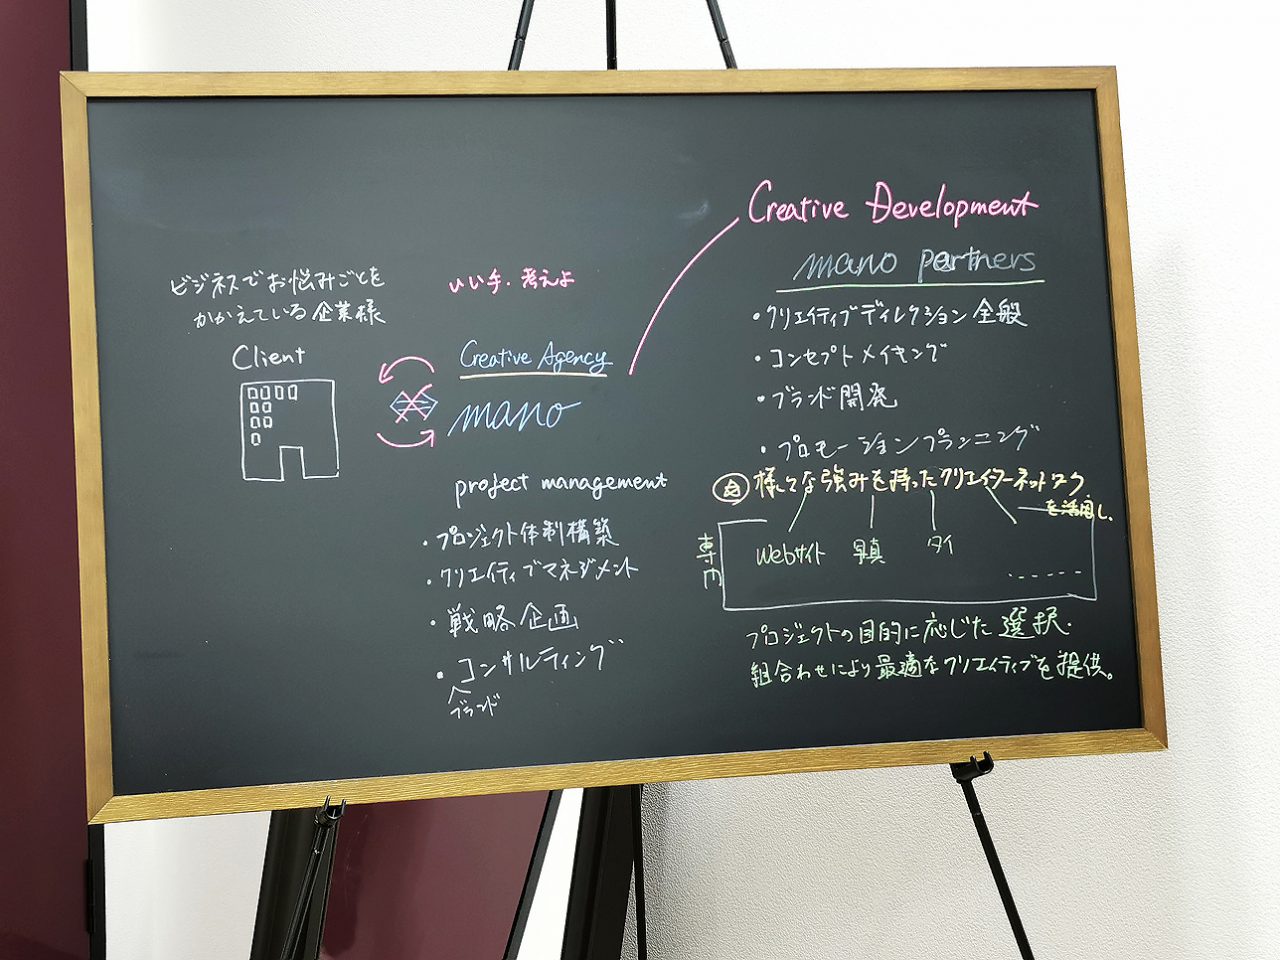 ビジネスでお悩みごとを
かかえている企業様
Client
いい手、考えよ
Creative Agency
mano
project management
・プロジェクト体制構築
・クリエイティブマネジメント
・戦略企画
・コンサルティング
ブランド
Creative Development
mano partners
・クリエイティブディレクション全般
・コンセプトメイキング
・ブランド開発
・プロモーションプランニング
様々な強みを持ったクリエイターネットワーク
を活用し、
専門
Webサイト 写真 タイ ......
プロジェクトの目的に応じた選択・
組合わせにより最適なクリエイティブを提供。